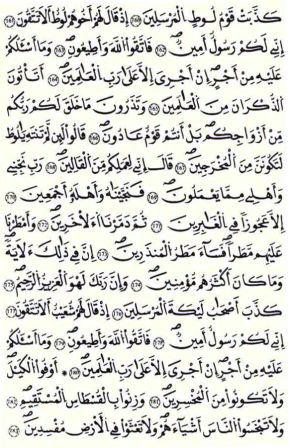 كَذَّبَتْ قَوْمُ لُوطٍ الْمُرْسَلِينَ ١٦٠ إِذْ قَالَ لَهُمْ أَخُوهُمْ لُوطٌ أَلَا تَتَّقُونَ ١٦١
إِنِّي لَكُمْ رَسُولٌ أَمِينٌ ١٦٢ فَاتَّقُوا اللَّهَ وَأَطِيعُونِ ١٦٣ وَمَا أَسْئَلُكُمْ
عَلَيْهِ مِنْ أَجْرٍ إِنْ أَجْرِيَ إِلَّا عَلَى رَبِّ الْعَالَمِينَ ١٦٤ أَتَأْتُونَ
الذُّكْرَانَ مِنَ الْعَالَمِينَ ١٦٥ وَتَذَرُونَ مَا خَلَقَ لَكُمْ رَبُّكُمْ
مِنْ أَزْوَاجِكُمْ بَلْ أَنْتُمْ قَوْمٌ عَادُونَ ١٦٦ قَالُوا لَئِنْ لَمْ تَنْتَهِ يَلُوطُ
لَتَكُونَنَّ مِنَ الْمُخْرَجِينَ ١٦٧ قَالَ إِنِّي لِعَمَلِكُمْ مِنَ الْقَالِينَ ١٦٨ رَبِّ نَجِّنِي
وَأَهْلِي مِمَّا يَعْمَلُونَ ١٦٩ فَنَجَّيْنَاهُ وَأَهْلَهُ أَجْمَعِينَ ١٧٠
إِلَّا عَجُوزًا فِي الْغَابِرِينَ ١٧١ ثُمَّ دَمَّرْنَا الْآخَرِينَ ١٧٢ وَأَمْطَرْنَا
عَلَيْهِمْ مَطَرًا فَسَاءَ مَطَرُ الْمُنْذَرِينَ ١٧٣ إِنَّ فِي ذَلِكَ لَآيَةً
وَمَا كَانَ أَكْثَرُهُمْ مُؤْمِنِينَ ١٧٤ وَإِنَّ رَبَّكَ لَهُوَ الْعَزِيزُ الرَّحِيمُ ١٧٥
كَذَّبَ أَصْحَابُ لَيْكَةَ الْمُرْسَلِينَ ١٧٦ إِذْ قَالَ لَهُمْ شُعَيْبٌ أَلَا تَتَّقُونَ ١٧٧
إِنِّي لَكُمْ رَسُولٌ أَمِينٌ ١٧٨ فَاتَّقُوا اللَّهَ وَأَطِيعُونِ ١٧٩ وَمَا أَسْئَلُكُمْ
عَلَيْهِ مِنْ أَجْرٍ إِنْ أَجْرِيَ إِلَّا عَلَى رَبِّ الْعَالَمِينَ ١٨٠ * أَوْفُوا الْكَيْلَ
وَلَا تَكُونُوا مِنَ الْمُخْسِرِينَ ١٨١ وَزِنُوا بِالْقِسْطَاسِ الْمُسْتَقِيمِ ١٨٢
وَلَا تَبْخَسُوا النَّاسَ أَشْيَاءَهُمْ وَلَا تَعْثَوْا فِي الْأَرْضِ مُفْسِدِينَ ١٨٣